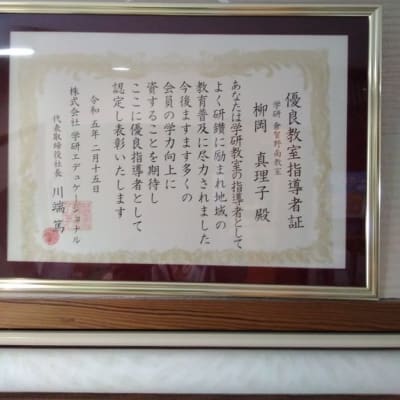 優良教室指導者証
学研 倉賀野南教室
柳岡 真理子 殿
あなたは学研教室の指導者として
よく研鑽に励まれ地域の
教育普及に尽力されました
今後ますます多くの
会員の学力向上に
資することを期待し
ここに優良指導者として
認定し表彰いたします
令和五年二月十五日
株式会社 学研エデュケーショナル
代表取締役社長 川端 篤